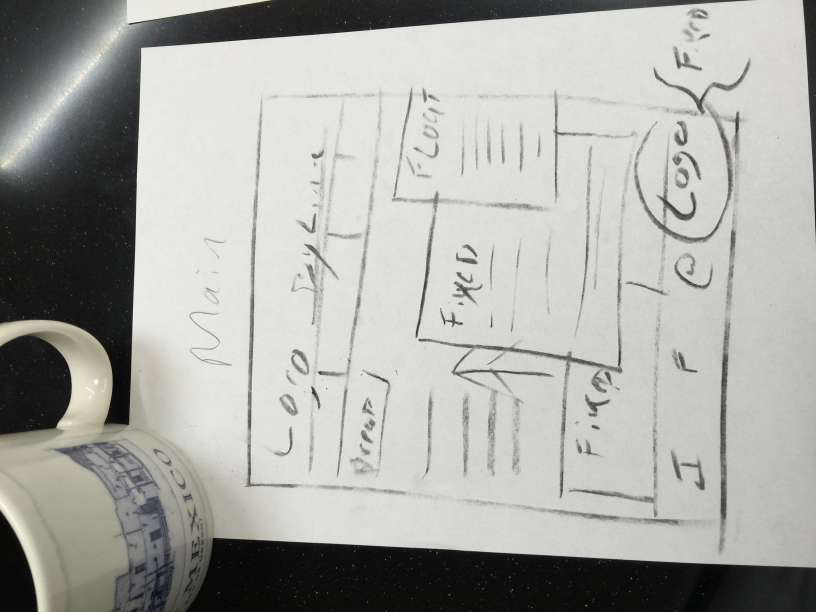 MEXICO
Main
Logo TagLine
Bread
FLOAT
FixeD
FixeD
I F @ Logo FixeD